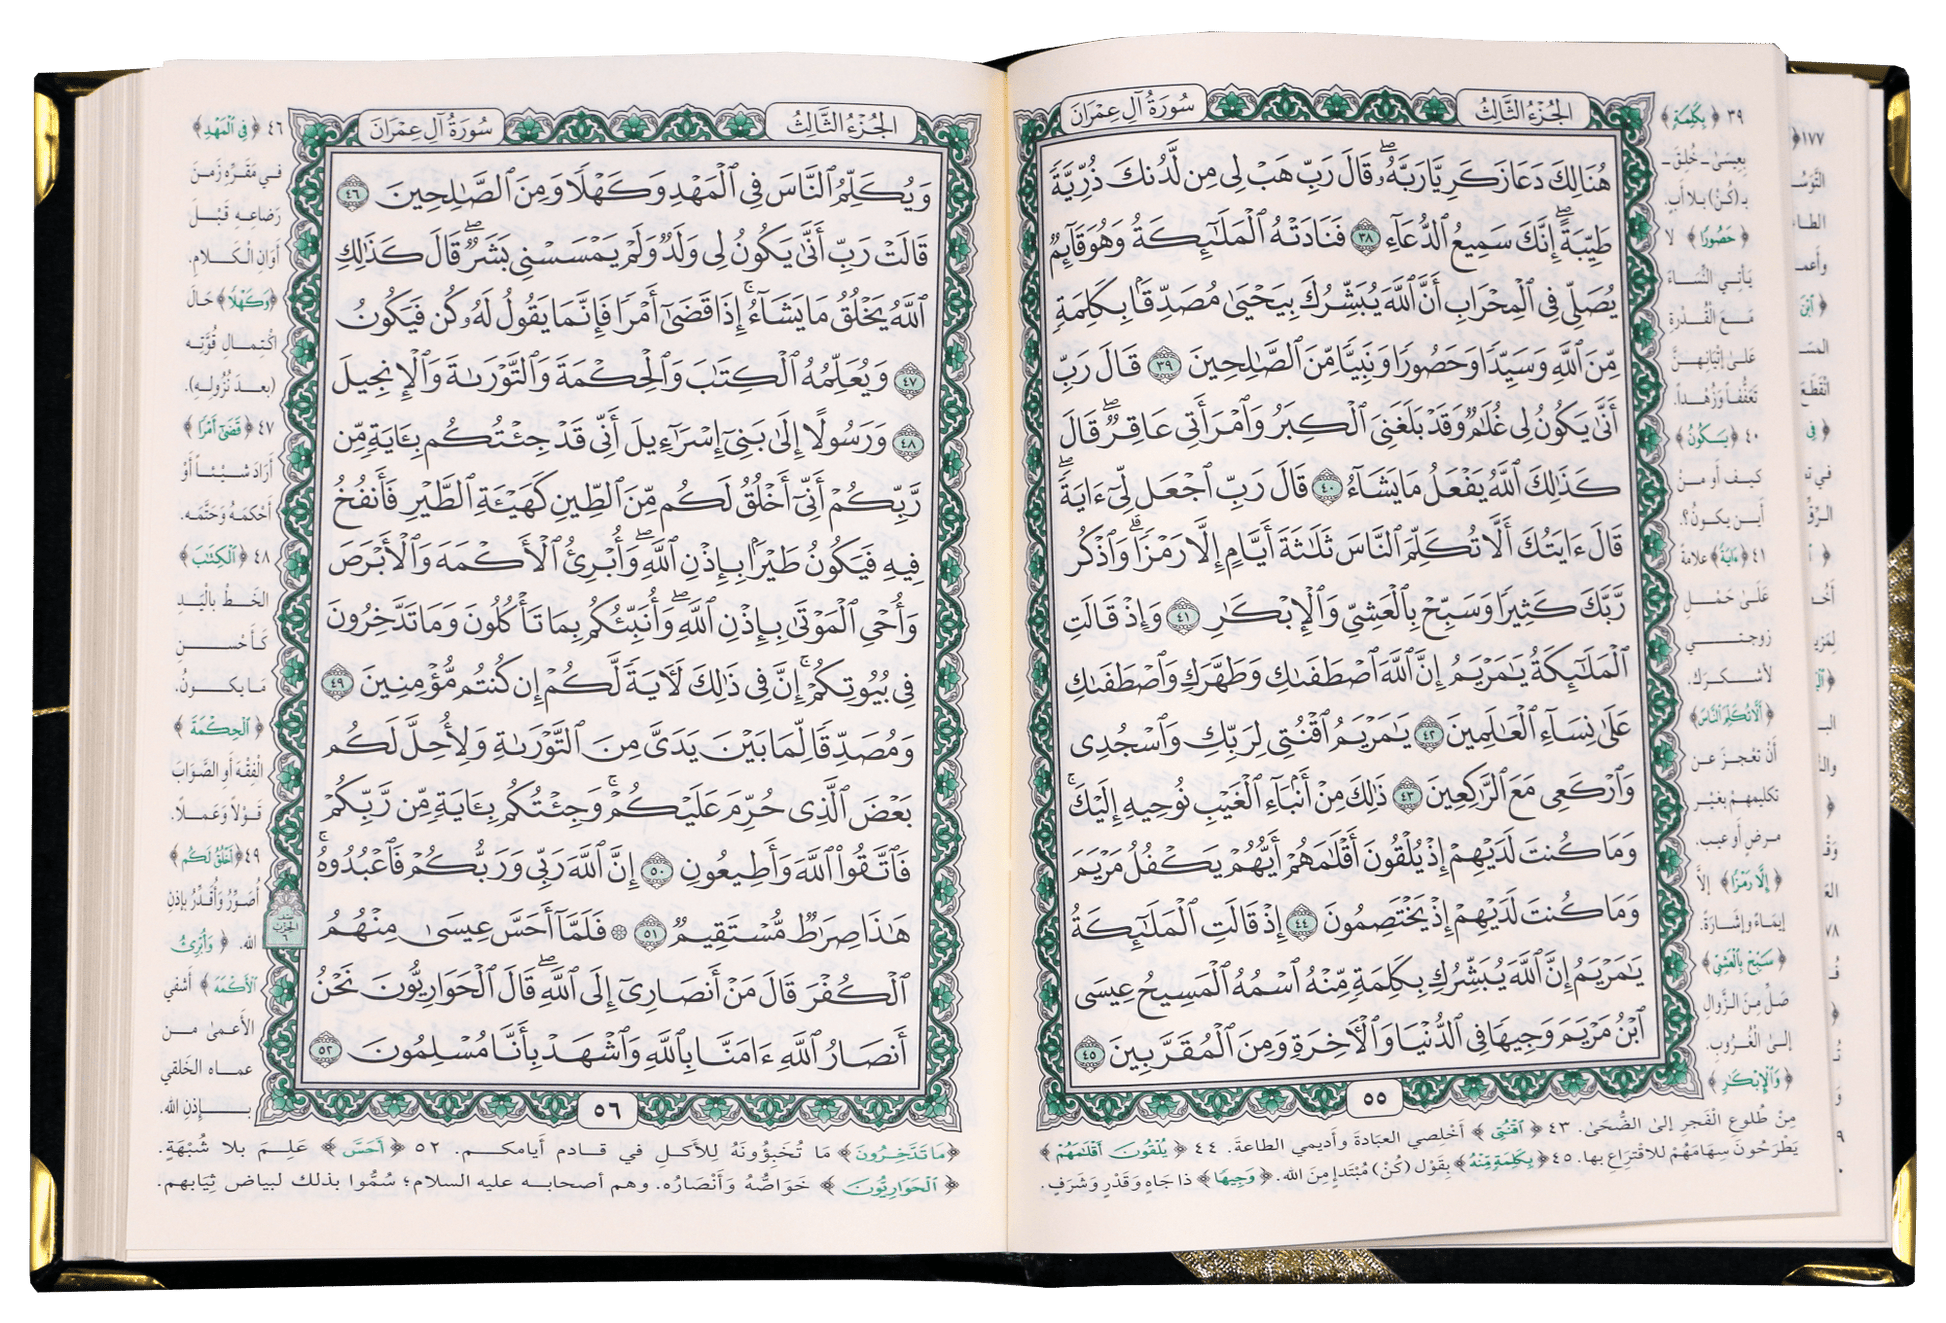 الجُزْءُ الثَّالِثُ
سُورَةُ آلِ عِمْرَانَ
هُنَالِكَ دَعَا زَكَرِيَّا رَبَّهُۥۖ قَالَ رَبِّ هَبْ لِي مِن لَّدُنكَ ذُرِّيَّةٗ
طَيِّبَةًۖ إِنَّكَ سَمِيعُ ٱلدُّعَآءِ ٣٨ فَنَادَتْهُ ٱلْمَلَٰٓئِكَةُ وَهُوَ قَآئِمٞ
يُصَلِّي فِي ٱلْمِحْرَابِ أَنَّ ٱللَّهَ يُبَشِّرُكَ بِيَحْيَىٰ مُصَدِّقَۢا بِكَلِمَةٖ
مِّنَ ٱللَّهِ وَسَيِّدٗا وَحَصُورٗا وَنَبِيّٗا مِّنَ ٱلصَّٰلِحِينَ ٣٩ قَالَ رَبِّ
أَنَّىٰ يَكُونُ لِي غُلَٰمٞ وَقَدْ بَلَغَنِيَ ٱلْكِبَرُ وَٱمْرَأَتِي عَاقِرٞۖ قَالَ
كَذَٰلِكَ ٱللَّهُ يَفْعَلُ مَا يَشَآءُ ٤٠ قَالَ رَبِّ ٱجْعَل لِّيٓ ءَايَةٗۖ
قَالَ ءَايَتُكَ أَلَّا تُكَلِّمَ ٱلنَّاسَ ثَلَٰثَةَ أَيَّامٍ إِلَّا رَمْزٗاۗ وَٱذْكُر
رَّبَّكَ كَثِيرٗا وَسَبِّحْ بِٱلْعَشِيِّ وَٱلْإِبْكَٰرِ ٤١ وَإِذْ قَالَتِ
ٱلْمَلَٰٓئِكَةُ يَٰمَرْيَمُ إِنَّ ٱللَّهَ ٱصْطَفَىٰكِ وَطَهَّرَكِ وَٱصْطَفَىٰكِ
عَلَىٰ نِسَآءِ ٱلْعَٰلَمِينَ ٤٢ يَٰمَرْيَمُ ٱقْنُتِي لِرَبِّكِ وَٱسْجُدِي
وَٱرْكَعِي مَعَ ٱلرَّٰكِعِينَ ٤٣ ذَٰلِكَ مِنْ أَنۢبَآءِ ٱلْغَيْبِ نُوحِيهِ إِلَيْكَۚ
وَمَا كُنتَ لَدَيْهِمْ إِذْ يُلْقُونَ أَقْلَٰمَهُمْ أَيُّهُمْ يَكْفُلُ مَرْيَمَ
وَمَا كُنتَ لَدَيْهِمْ إِذْ يَخْتَصِمُونَ ٤٤ إِذْ قَالَتِ ٱلْمَلَٰٓئِكَةُ
يَٰمَرْيَمُ إِنَّ ٱللَّهَ يُبَشِّرُكِ بِكَلِمَةٖ مِّنْهُ ٱسْمُهُ ٱلْمَسِيحُ عِيسَى
ٱبْنُ مَرْيَمَ وَجِيهٗا فِي ٱلدُّنْيَا وَٱلْأٓخِرَةِ وَمِنَ ٱلْمُقَرَّبِينَ ٤٥
٥٥
٣٩ ﴿بِكَلِمَةٖ﴾
بِعِيسَىٰ ـ خُلِقَ ـ
بـ(كُنْ) بلا أبٍ.
﴿حَصُورًا﴾ لا
يَأتِي النِّسَاءَ
مَعَ الْقُدْرةِ
عَلىٰ إِتْيَانِهِنَّ
تَعَفُّفاً وَزُهْداً.
٤٠ ﴿يَكُونُ﴾
كيف أو مـنْ
أيـن يكونُ؟.
٤١ ﴿ءَايَةٗ﴾ علامةً
عَلَىٰ حَمْـلِ
زوجـتـــي
لأشـكـرَك.
﴿أَلَّا تُكَلِّمَ النَّاسَ﴾
أنْ تعْجـزَ عـن
تكليمهمْ بغيْـر
مـرضٍ أو عيب.
﴿إِلَّا رَمْزٗا﴾ إلاَّ
إيمَاءً وإشَارةً.
﴿سَبِّحْ بِالْعَشِيِّ﴾
صَلِّ مِنَ الزَّوال
إلـىٰ الْغُـرُوبِ.
﴿وَالْإِبْكَٰرِ﴾
مِنْ طُلوعِ الْفَجرِ إلىٰ الضُّحَىٰ. ٤٣ ﴿اقْنُتِي﴾ أخْلِصي العبَادةَ وأديمي الطاعةَ. ٤٤ ﴿يُلْقُونَ أَقْلَٰمَهُمْ﴾
يَطْرَحُونَ سِهَامَهُمْ للاقْتِرَاعِ بها. ٤٥ ﴿بِكَلِمَةٖ مِّنْهُ﴾ بِقَوْل (كُنْ) مُبْتَدإ مِنَ الله. ﴿وَجِيهٗا﴾ ذا جَاهٍ وَقَدْرٍ وَشَرَفٍ.
الجُزْءُ الثَّالِثُ
سُورَةُ آلِ عِمْرَانَ
وَيُكَلِّمُ ٱلنَّاسَ فِي ٱلْمَهْدِ وَكَهْلٗا وَمِنَ ٱلصَّٰلِحِينَ ٤٦
قَالَتْ رَبِّ أَنَّىٰ يَكُونُ لِي وَلَدٞ وَلَمْ يَمْسَسْنِي بَشَرٞۖ قَالَ كَذَٰلِكِ
ٱللَّهُ يَخْلُقُ مَا يَشَآءُۚ إِذَا قَضَىٰٓ أَمْرٗا فَإِنَّمَا يَقُولُ لَهُۥ كُن فَيَكُونُ
٤٧ وَيُعَلِّمُهُ ٱلْكِتَٰبَ وَٱلْحِكْمَةَ وَٱلتَّوْرَىٰةَ وَٱلْإِنجِيلَ
٤٨ وَرَسُولًا إِلَىٰ بَنِيٓ إِسْرَٰٓءِيلَ أَنِّي قَدْ جِئْتُكُم بِـَٔايَةٖ مِّن
رَّبِّكُمْ أَنِّيٓ أَخْلُقُ لَكُم مِّنَ ٱلطِّينِ كَهَيْـَٔةِ ٱلطَّيْرِ فَأَنفُخُ
فِيهِ فَيَكُونُ طَيْرَۢا بِإِذْنِ ٱللَّهِۖ وَأُبْرِئُ ٱلْأَكْمَهَ وَٱلْأَبْرَصَ
وَأُحْيِ ٱلْمَوْتَىٰ بِإِذْنِ ٱللَّهِۖ وَأُنَبِّئُكُم بِمَا تَأْكُلُونَ وَمَا تَدَّخِرُونَ
فِي بُيُوتِكُمْۚ إِنَّ فِي ذَٰلِكَ لَأٓيَةٗ لَّكُمْ إِن كُنتُم مُّؤْمِنِينَ ٤٩
وَمُصَدِّقٗا لِّمَا بَيْنَ يَدَيَّ مِنَ ٱلتَّوْرَىٰةِ وَلِأُحِلَّ لَكُم
بَعْضَ ٱلَّذِي حُرِّمَ عَلَيْكُمْۚ وَجِئْتُكُم بِـَٔايَةٖ مِّن رَّبِّكُمْ
فَٱتَّقُوا۟ ٱللَّهَ وَأَطِيعُونِ ٥٠ إِنَّ ٱللَّهَ رَبِّي وَرَبُّكُمْ فَٱعْبُدُوهُۚ
هَٰذَا صِرَٰطٞ مُّسْتَقِيمٞ ٥١ ۞ فَلَمَّآ أَحَسَّ عِيسَىٰ مِنْهُمُ
ٱلْكُفْرَ قَالَ مَنْ أَنصَارِيٓ إِلَى ٱللَّهِۖ قَالَ ٱلْحَوَارِيُّونَ نَحْنُ
أَنصَارُ ٱللَّهِ ءَامَنَّا بِٱللَّهِ وَٱشْهَدْ بِأَنَّا مُسْلِمُونَ ٥٢
٥٦
٤٦ ﴿فِي الْمَهْدِ﴾
فـي مَقَرِّه زَمنَ
رَضَاعِـهِ قَبْـلَ
أوَانِ الْكَـلامِ.
﴿وَكَهْلٗا﴾ حَالَ
اكْتِمـالِ قُوَّتِـه
(بعدَ نُزُولـهِ).
٤٧ ﴿قَضَىٰٓ أَمْرٗا﴾
أَرَادَ شـيْـئـاً أوْ
أحْكمَهُ وَحَتَّمَه.
٤٨ ﴿الْكِتَٰبَ﴾
الخَـطَّ بالْيَـدِ
كَـأحْسـنِ
مَـا يكـونُ.
﴿الْحِكْمَةَ﴾
الْفِقْهَ أوِ الصَّوَابَ
قَـوْلاً وَعَمـلاً.
٤٩ ﴿أَخْلُقُ لَكُم﴾
أُصَوِّرُ وَأُقَدِّرُ بإذنِ
الله. ﴿وَأُبْرِئُ
الْأَكْمَهَ﴾ أَشْفي
الأَعمىٰ مـن
عماه الخَلقي
بـإذنِ الله.
نصف
الحزب
٦
﴿مَا تَدَّخِرُونَ﴾ مَا تُخَبِّؤُونَهُ لِلأكلِ في قادم أيامكـم. ٥٢ ﴿أَحَسَّ﴾ عَلِـمَ بلا شُبْهَةٍ.
﴿الْحَوَارِيُّونَ﴾ خَوَاصُّهُ وَأَنْصَارُه. وهم أصحابـه عليه السلام؛ سُمُّوا بذلك لبياض ثِيَابهم.